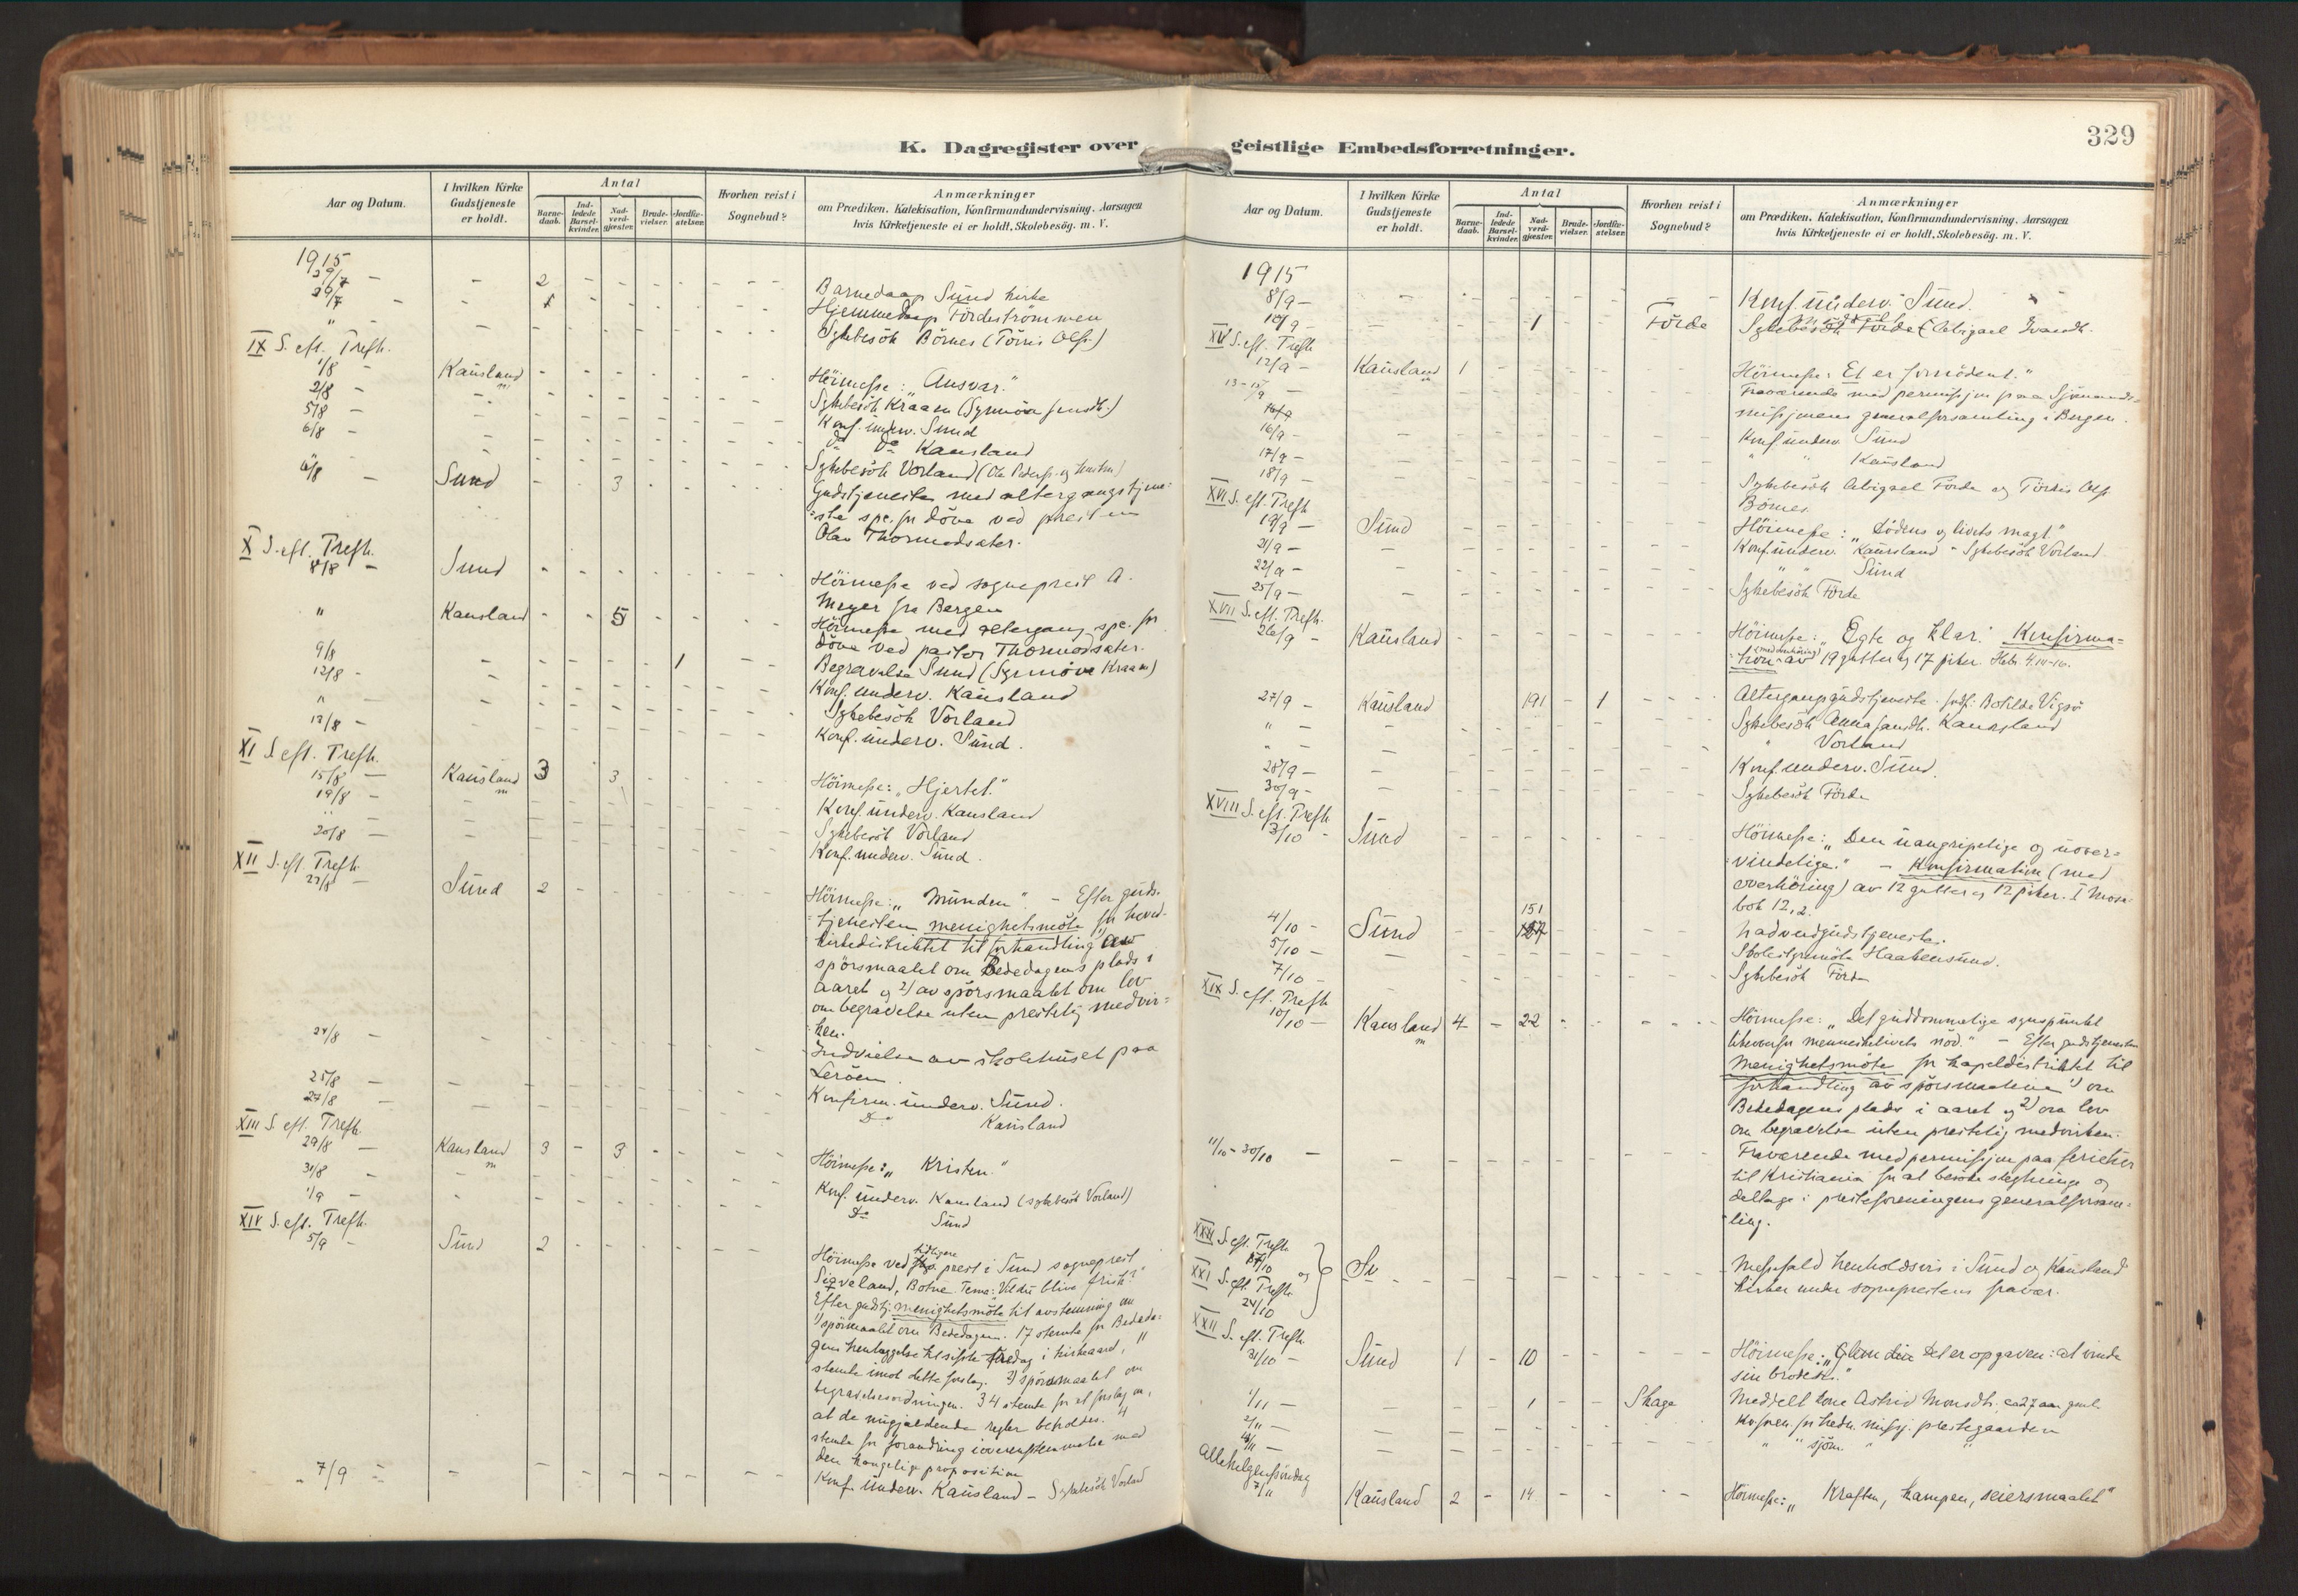 K. Dagregister over geistlige Embedsforretninger.
329
Aar og Datum.
I hvilken Kirke Gudstjeneste er holdt.
Antal
Barne-daab.
Ind-ledede Barsel-kvinder.
Nad-verd-gjæster.
Brude-vielser.
Jordfæ-stelser.
Hvorhen reist i Sognebud?
Anmærkninger
om Prædiken, Katekisation, Konfirmandundervisning, Aarsagen
hvis Kirketjeneste ei er holdt, Skolebesög. m. V.
1915
29/7 - - 2 - - - - - - Barnedaap Sund kirke
- 1 - - - - - - Hjemmedaap Fördeströmmen
" - Sykebesök Börnes (Törris Ols.)
IX S. eft. Trefh.
1/8 - Kausland - - - - - Höimesse: "Ansvar."
2/8 - Sykebesök Kraaen
5/8 - Konf. underv. Sund
6/8 - do do Kausland
Sykebesök Vorland
6/8 - Sund - - 3 - - - Gudstjeneste med altergangstjene-
ste spec. for döve ved prest
Olav Thormodsæter.
X S. eft. Trefh.
8/8 - Sund - - - - - - Höimesse ved sogneprest A.
Meyer fra Bergen
" Kausland - - 5 - - Höimesse med altergang spe. for
döve ved pastor Thormodsæter.
9/8 - 1 - - Begravelse Sund (Synnöve Kraaen)
12/8 - - Konf. underv. Kausland
" - Sykebesök Vorland
13/8 - Konf. underv. Sund.
XI S. eft. Trefh.
15/8 - Kausland 3 3 - - - Höimesse: "Hjertet."
19/8 - - Konf. underv. Kausland
" - - Sykebesök Vorland
20/8 - - Konf. underv. Sund.
XII S. eft. Trefh.
22/8 - Sund 2 - - - - Höimesse: "Munden". - Efter guds-
tjenesten menighetsmöte for hoved-
kirkedistriktet til forhandling av
spörsmaalet om Bededagens plads i
aaret og 2) av spörsmaalet om lov
om begravelse uten prestelig medvir-
ken.
24/8 - Indvielse av skolehuset paa
Leröen.
25/8 - - Konfirm. underv. Sund.
27/8 - - Do Kausland
XIII S. eft. Trefh.
29/8 - Kausland 3 - 3 - - - Höimesse: "Kristen."
31/8 - - Konf. underv. Kausland (sykebesök Vorland)
1/9 - - Do Sund
XIV S. eft. Trefh.
5/9 - Sund 2 - - - - Höimesse ved tidligere prest i Sund sogneprest
Sigveland, Botne. Tema: Vil du blive frisk?
Efter gudstj. menighetsmöte til avstemning om
1) spörsmaalet om Bededagen. 17 stemte for Bededa-
gens henlæggelse til sidste fredag i kirkeaaret, 11
stemte imot dette forslag. 2) spörsmaalet om
begravelsesordningen. 34 stemte for et forslag om,
at de nugjældende regler beholdes. 4
stemte for forandring i overensstemmelse med
den kongelige proposition
7/9 - - Konf. underv. Kausland - Sykebesök Vorland
Aar og Datum.
I hvilken Kirke Gudstjeneste er holdt.
Antal
Barne-daab.
Ind-ledede Barsel-kvinder.
Nad-verd-gjæster.
Brude-vielser.
Jordfæ-stelser.
Hvorhen reist i Sognebud?
Anmærkninger
om Prædiken, Katekisation, Konfirmandundervisning, Aarsagen
hvis Kirketjeneste ei er holdt, Skolebesög. m. V.
1915
8/9 - - Konf. underv. Sund.
- - 1 - - Förde Sykebesök Förde (Abigael
XV S. eft. Trefh
12/9 - Kausland 1 - - - - Höimesse: Et er fornödent."
13-15/9 - Fraværende med permissjon paa Sjömands-
missjonens generalforsamling i Bergen.
16/9 - - Konf. underv. Sund
17/9 - - " " Kausland
18/9 - - Sykebesök Abigael Förde og Törris Ols.
Börnes.
XVI S. eft. Trefh
19/9 - Sund - - - - Höimesse: "Dödens og livets magt."
21/9 - - Konf. underv. Kausland - Sykebesök Vorland
22/9 - - " " Sund
25/9 - - Sykebesök Förde
XVII S. eft. Trefh.
26/9 - Kausland - - - - Höimesse: "Egte og klar." Konfirma-
tion (med overhöring) av 19 gutter og 17 piker. Hebr. 4.14-16.
27/9 - Kausland 191 - 1 - Altergangsgudstjeneste. Botilde Vigsö
" - - Sykebesök Anna Kausland
" - - " Vorland
28/9 - - Konf. underv. Sund.
30/9 - - Sykebesök Förde
XVIII S. eft. Trefh
3/10 - Sund - - - - Höimesse: "Den uangripelige og uover-
vindelige." - Konfirmation (med
overhöring) av 12 gutter og 12 piker. I Mose-
bok 12,2.
4/10 - Sund 151 - - Nadverdgudstjeneste.
5/10 - - Skolestyremöte Haakensund.
7/10 - - Sykebesök Förde
XIX S. eft. Trefh
10/10 - Kausland 4 - 22 - - - Höimesse: "Det guddommelige synspunkt
menneskelivets nöd." - Efter gudstjenesten
Menighetsmöte for kapeldistriktet til
forhandling av spörsmaalene 1) om
Bededagens plads i aaret og 2) om lov
om begravelse uten prestelig medvirken.
11/10 - 30/10 - - Fraværende med permissjon paa ferietur
til Kristiania for at besöke slegtninge og
deltage i presteforeningens generalforsam-
ling.
S. eft. Trefh.
17/10 og
XXI S. eft. Trefh.
24/10
Messefald henholdsvis i Sund og Kausland
kirker under sogneprestens fravær.
XXII S. eft. Trefh.
31/10 - Sund 1 - 10 - - - Höimesse: "Glem det er opgaven: at vinde
sin broder."
1/11 - - 1 - Skage Meddelt kone Astrid Monsdtr. ca 27 aar gml.
2/11 - - for hedn. missj. prestegaarden
- " " sjöm. "
Allehelgensöndag
7/11 Kausland 2 - 14 - - - Höimesse: "Kraften, kampen, seiersmaalet"